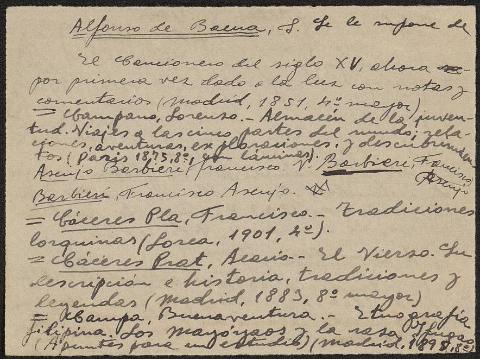 Alfonso de Baena, J. Se le supone de
El Cancionero del siglo XV, ahora
por primera vez dado a la luz con notas y
comentarios (Madrid, 1851, 4º mayor)
= Campano, Lorenzo.- Almacén de la juven-
tud. Viajes a las cinco partes del mundo; rela-
ciones, aventuras, exploraciones, y descubrimien
tos (París 1895, 8º, con láminas).
Asenjo Barbieri, Francisco V. Barbieri, Francisco
Asenjo
Barbieri, Francisco Asenjo.
= Cáceres Pla, Francisco.- Tradiciones
lorquinas (Lorca, 1901, 4º).
= Cáceres Prat, Acacio.- El Vierzo. Su
descripción e historia, tradiciones y
leyendas (Madrid, 1883, 8º mayor)
= Campa, Buenaventura.- Etnografía
filipina. Los mayoyaos y la raza Ifugao
(Apuntes para un estudio) (Madrid, 1895, 8º)